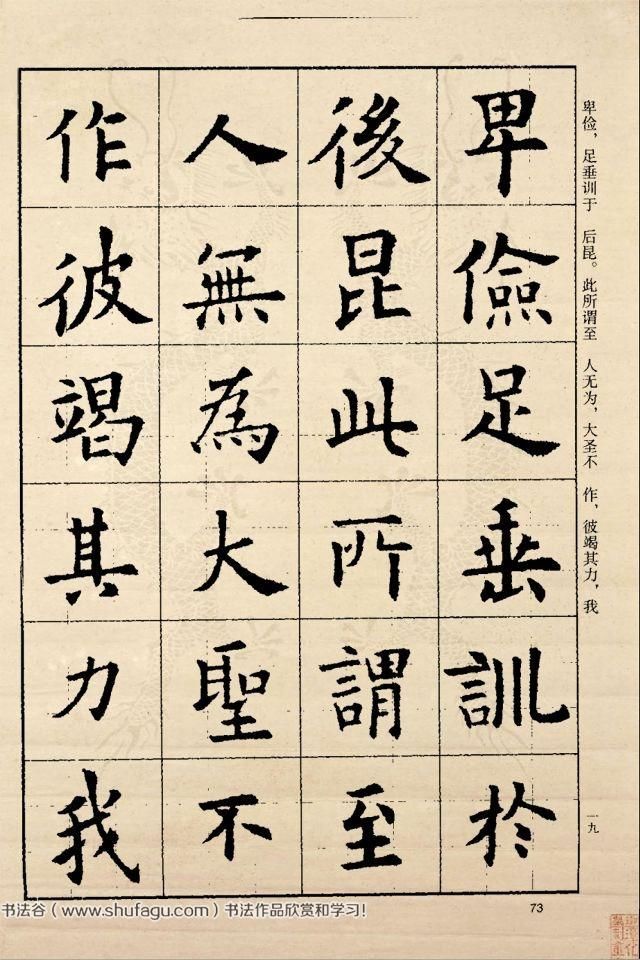 卑儉足垂訓於
後昆此所謂至
人無為大聖不
作彼竭其力我
卑俭，足垂训于 后昆。此所谓至 人无为，大圣不 作，彼竭其力，我
一九
73
书法谷（www.shufagu.com）书法作品欣赏和学习！